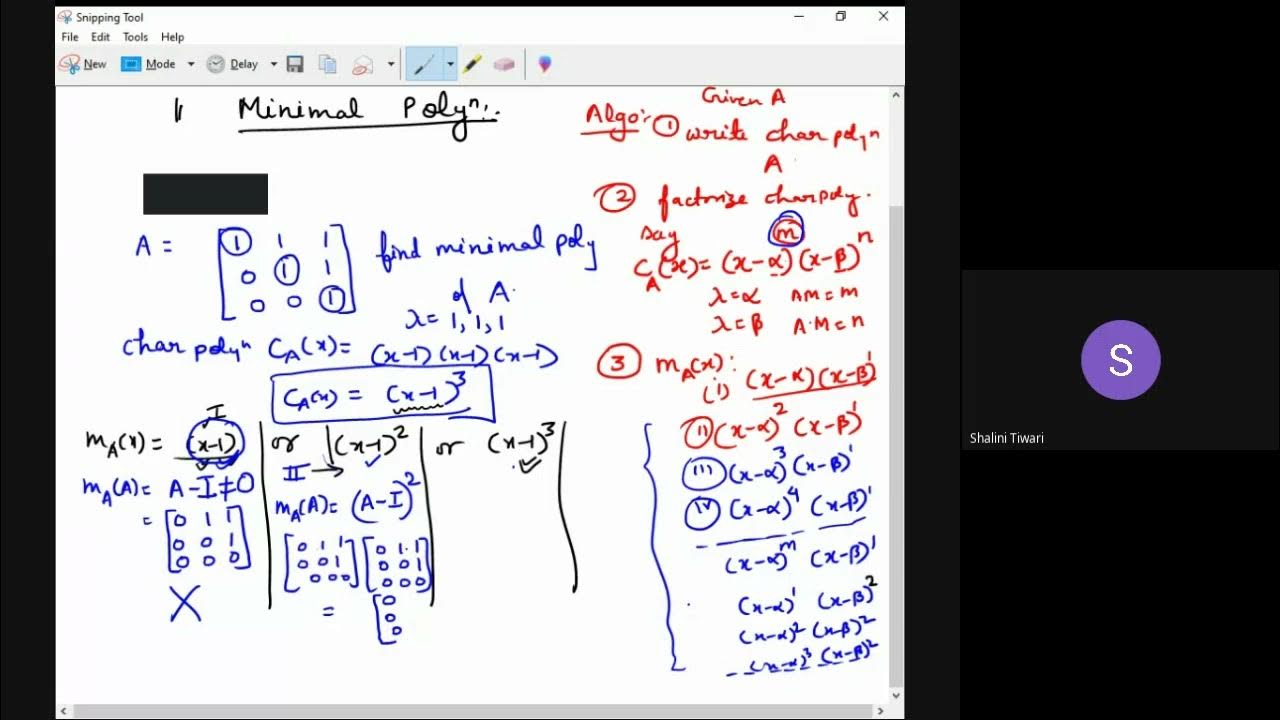 Snipping Tool
File Edit Tools Help
New Mode Delay
Minimal Polyⁿ:.
A = [1 1 1
0 1 1
0 0 1] find minimal poly
of A.
λ = 1, 1, 1
char polyⁿ C_A(x) = (x-1)(x-1)(x-1)
C_A(x) = (x-1)³
I
m_A(x) = (x-1) | or | (x-1)² | or (x-1)³ |
II →
m_A(A) = A - I ≠ 0
= [0 1 1
0 0 1
0 0 0]
X
m_A(A) = (A-I)²
[0 1 1
0 0 1
0 0 0] [0 1 1
0 0 1
0 0 0]
= [0
0
0
Given A
Algo: ① write char polyⁿ
A
② factorize char poly.
say
C_A(x) = (x-α)^m (x-β)^n
λ = α AM = m
λ = β A.M = n
③ m_A(x):
(i) (x-α)(x-β)¹
(ii) (x-α)² (x-β)¹
(iii) (x-α)³ (x-β)¹
(iv) (x-α)⁴ (x-β)¹
(x-α)^m (x-β)¹
(x-α)¹ (x-β)²
(x-α)² (x-β)²
(x-α)³ (x-β)²
S
Shalini Tiwari